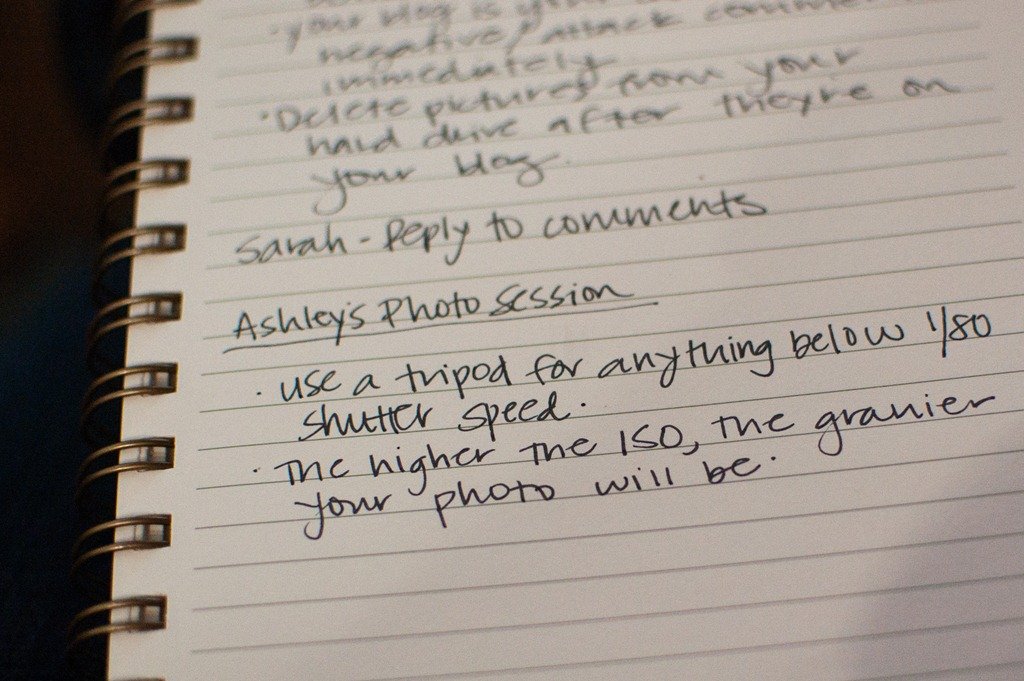 · your blog is your
negative/attack comme
immediately
· Delete pictures from your
hard drive after they're on
your blog.
Sarah - Reply to comments
Ashley's Photo Session
· use a tripod for anything below 1/80
shutter speed.
· The higher the ISO, the granier
your photo will be.